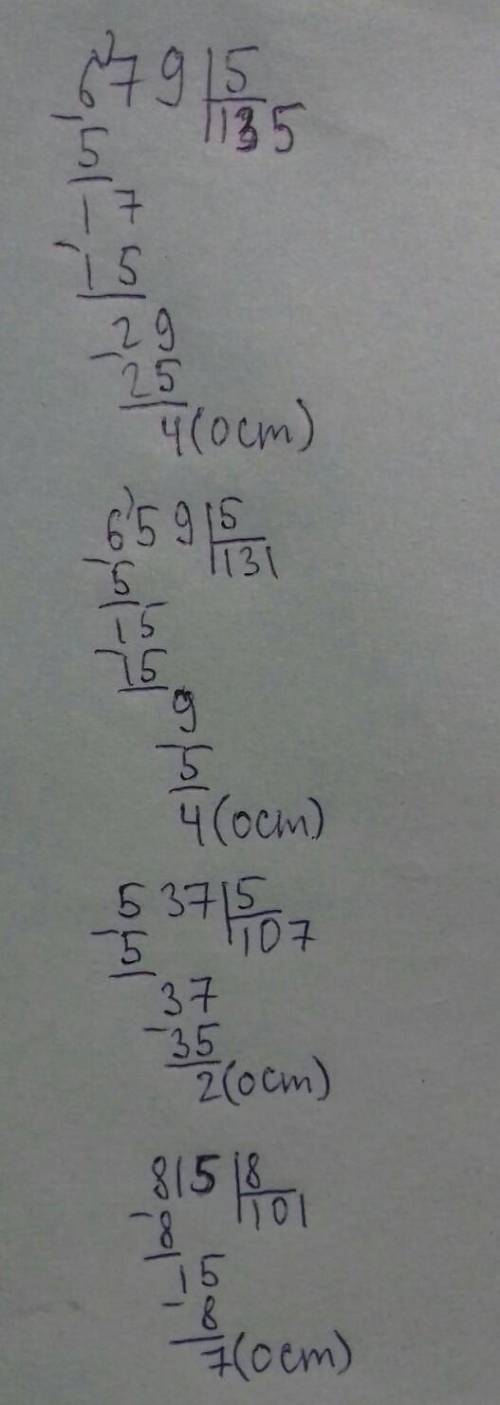 679 | 5
- 5 | 135
17
- 15
29
- 25
4 (ост)
659 | 5
- 5 | 131
15
- 15
9
- 5
4 (ост)
537 | 5
- 5 | 107
37
- 35
2 (ост)
815 | 8
- 8 | 101
15
- 8
7 (ост)